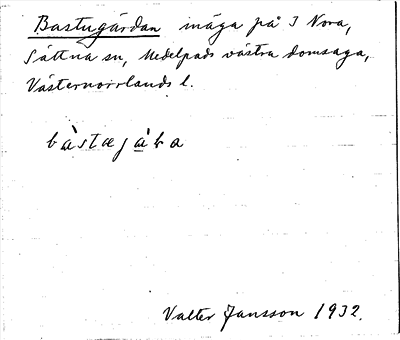 Bastugärdan inäga på I Nora,
Sättna sn, Medelpads västra domsaga,
Västernorrlands l.
Valter Jansson 1932.